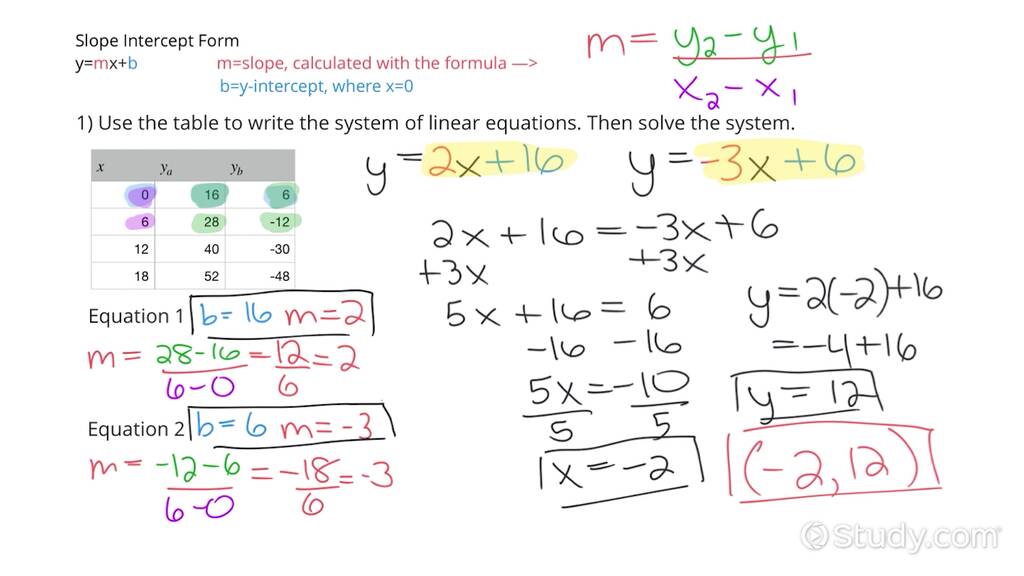 Slope Intercept Form
y=mx+b
m=slope, calculated with the formula —>
b=y-intercept, where x=0
m = y₂ - y₁
x₂ - x₁
1) Use the table to write the system of linear equations. Then solve the system.
x yₐ y_b
0 16 6
6 28 -12
12 40 -30
18 52 -48
Equation 1 b= 16 m=2
m = 28-16 = 12 = 2
6-0 6
Equation 2 b= 6 m= -3
m= -12-6 = -18 = -3
6-0 6
y=2x+16
y=-3x+6
2x+16=-3x+6
+3x +3x
5x+16= 6
-16 -16
5x=-10
5 5
x=-2
y=2(-2)+16
=-4+16
y=12
(-2, 12)
Study.com